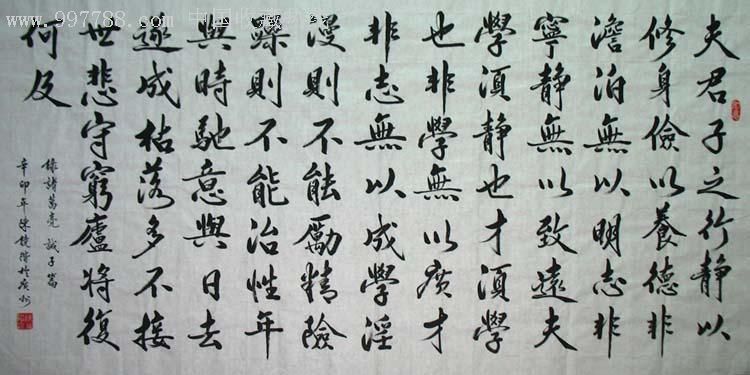 夫君子之行静以
修身儉以養德非
澹泊無以明志非
寧静無以致遠夫
學須静也才須學
也非學無以廣才
非志無以成學淫
漫則不能勵精險
躁則不能治性年
與時馳意與日去
遂成枯落多不接
世悲守窮廬將復
何及
録諸葛亮誡子篇
辛卯年陳於廣州
www.997788.com 中国收藏热线